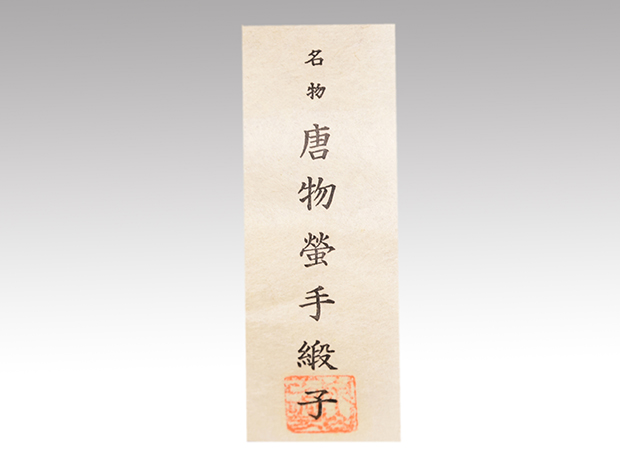 名物 唐物螢手緞子